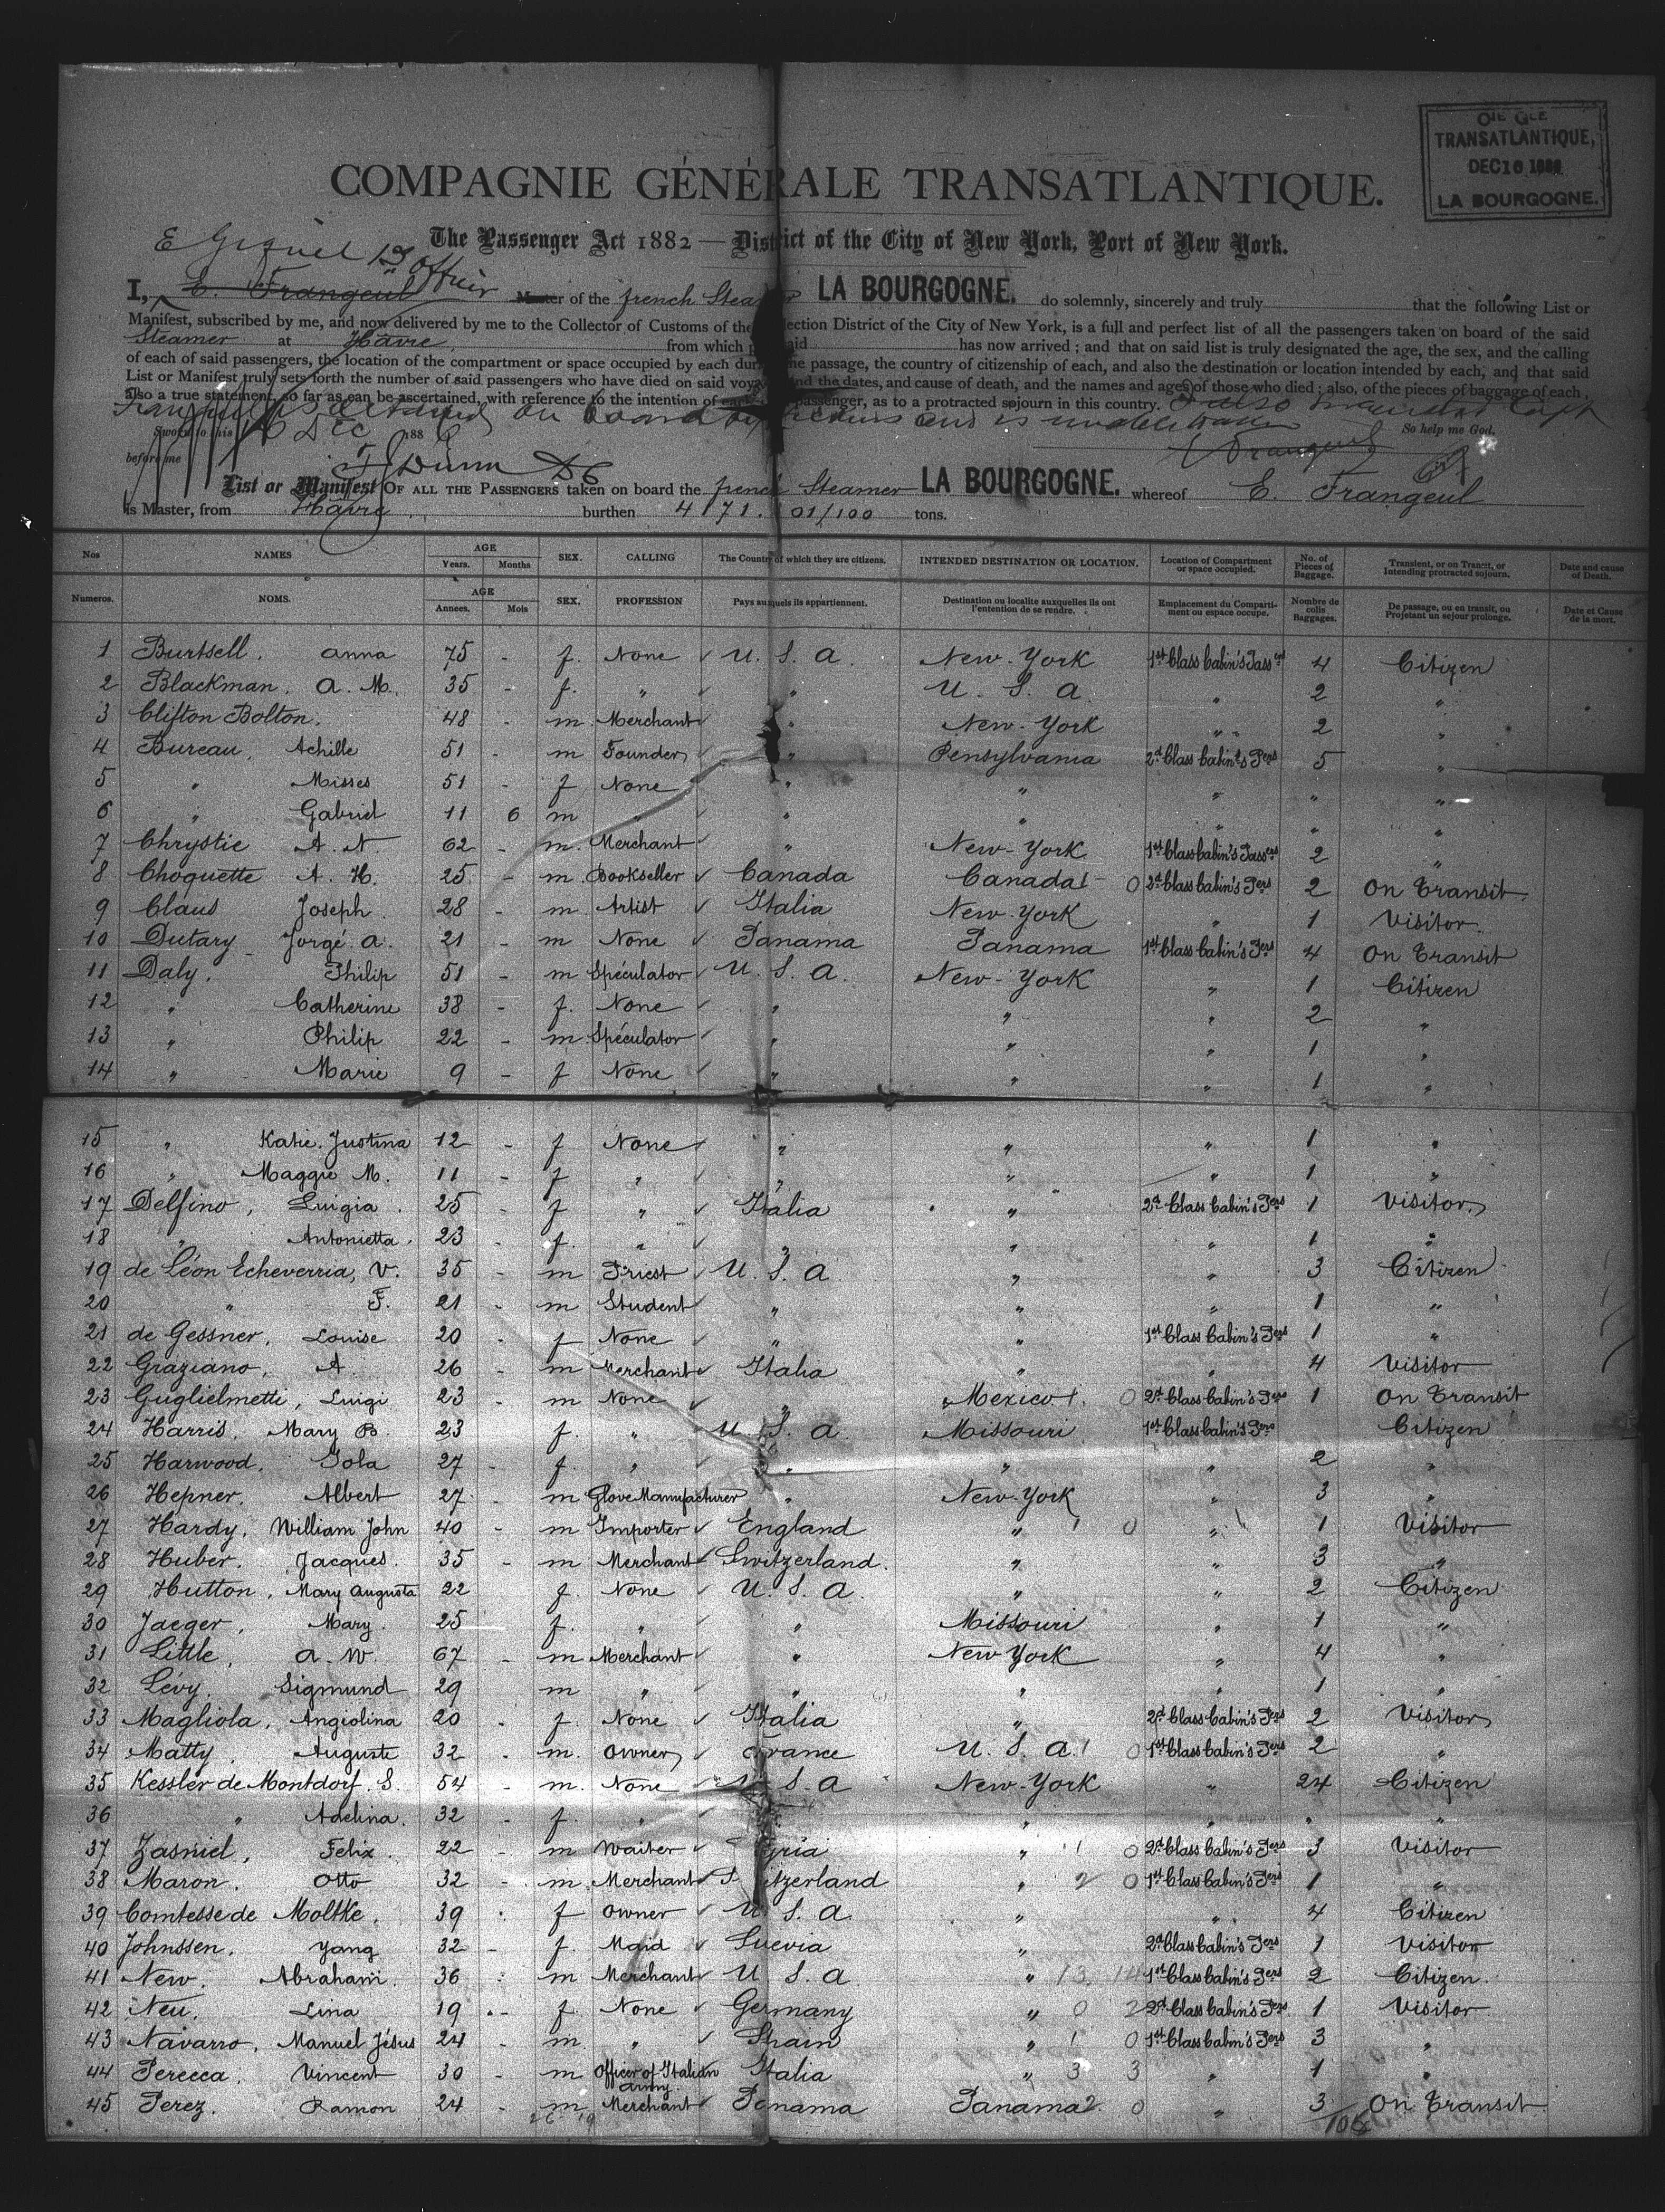 Cie Gle
TRANSATLANTIQUE,
DEC 16 1886
LA BOURGOGNE.
COMPAGNIE GÉNÉRALE TRANSATLANTIQUE.
The Passenger Act 1882 — District of the City of New York, Port of New York.
I, E. Frangeul Master of the french Steamer LA BOURGOGNE. do solemnly, sincerely and truly that the following List or
Manifest, subscribed by me, and now delivered by me to the Collector of Customs of the Collection District of the City of New York, is a full and perfect list of all the passengers taken on board of the said
Steamer at Havre from which said has now arrived; and that on said list is truly designated the age, the sex, and the calling
of each of said passengers, the location of the compartment or space occupied by each during the passage, the country of citizenship of each, and also the destination or location intended by each, and that said
List or Manifest truly sets forth the number of said passengers who have died on said voyage and the dates, and cause of death, and the names and ages of those who died; also, of the pieces of baggage of each,
also a true statement, so far as can be ascertained, with reference to the intention of each passenger, as to a protracted sejourn in this country.
Sworn to this 16 Dec 1886 So help me God.
before me
List or Manifest OF ALL THE PASSENGERS taken on board the french Steamer LA BOURGOGNE. whereof E. Frangeul
is Master, from Havre burthen 4171. 01/100 tons.
Nos NAMES AGE Years. Months SEX. CALLING The Country of which they are citizens. INTENDED DESTINATION OR LOCATION. Location of Compartment or space occupied. No. of Pieces of Baggage. Transient, or on Transit, or Intending protracted sojourn. Date and cause of Death.
Numeros. NOMS. AGE Annees. Mois SEX. PROFESSION Pays auxquels ils appartiennent. Destination ou localite auxquelles ils ont l'entention de se rendre. Emplacement du Comparti-ment ou espace occupe. Nombre de colis Baggages. De passage, ou en transit, ou Projetant un sejour prolonge. Date et Cause de la mort.
1 Burtsell, Anna 75 - f. None U. S. A. New-York 1st Class Cabin's 4 Citizen
2 Blackman, A. M. 35 - f. " " U. S. A. " 2 "
3 Clifton Bolton. 48 - m Merchant " New-York " 2 "
4 Bureau, Achille 51 - m Founder " Pensylvania 2d Class Cabin's Pers 5 "
5 " Misses 51 - f None " " " " "
6 " Gabriel 11 6 m " " " " " "
7 Chrystie A. N. 62 - m. Merchant " New-York 1st Class Cabin's 2 "
8 Choquette A. H. 25 - m. Bookseller Canada Canada 1 0 2d Class Cabin's Pers 2 On Transit
9 Claus Joseph 28 - m Artist Italia New-York " 1 Visitor
10 Dutary Jorgé. A. 21 - m None Panama Panama 1st Class Cabin's Pers 4 On Transit
11 Daly, Philip 51 - m Spéculator U. S. A. New-York " 1 Citizen
12 " Catherine 38 - f. None " " " 2 "
13 " Philip 22 - m Spéculator " " " 1 "
14 " Marie 9 - f None " " " 1 "
15 " Katie. Justina 12 - f None " " " 1 "
16 " Maggie M. 11 - f " " " " 1 "
17 Delfino, Luigia 25 - f " Italia " 2d Class Cabin's Pers 1 Visitor
18 " Antonietta 23 - f. " " " " 1 "
19 de Léon Echeverria, V. 35 - m Priest U. S. A. " " 3 Citizen
20 " F. 21 - m Student " " " 1 "
21 de Gessner, Louise 20 - f None " " 1st Class Cabin's Pers 1 "
22 Graziano, A. 26 - m Merchant Italia " " 4 Visitor
23 Guglielmetti, Luigi 23 - m None " Mexico 1. 0 2d Class Cabin's Pers 1 On Transit
24 Harris, Mary B. 23 f. " U. S. A. Missouri 1st Class Cabin's Pers Citizen
25 Harwood, Iola 27 - f. " " " " 2 "
26 Hepner, Albert 27 - m Glove Manufacturer " New-York " 3 "
27 Hardy, William John 40 - m Importer England " 1 0 " 1 Visitor
28 Huber. Jacques. 35 - m Merchant Switzerland. " " 3 "
29 Hutton, Mary Augusta 22 f. None U. S. A. " " 2 Citizen
30 Jaeger, Mary. 25 f. " " Missouri " 1 "
31 Little, A. W. 67 - m Merchant " New York " 4 "
32 Lévy. Sigmund 29 m " " " " 1 "
33 Magliola, Angiolina 20 - f. None Italia " 2d Class Cabin's Pers 2 Visitor
34 Matty, Auguste 32 - m. Owner France U. S. A. 1 0 1st Class Cabin's Pers 2 "
35 Kessler de Montdorf. S. 54 - m. None U. S. A New-York " 24 Citizen
36 " Adelina. 32 - f. " " " " "
37 Zasniel, Felix. 22 - m Waiter " 1 0 2d Class Cabin's Pers 3 Visitor
38 Maron. Otto 32 - m. Merchant Switzerland " 2 0 1st Class Cabin's Pers 1 "
39 Comtesse de Moltke, 39 - f Owner U. S. A. " " 4 Citizen
40 Johnssen. Yang 32 - f. Maid Suevia " 2d Class Cabin's Pers 1 Visitor
41 New. Abraham. 36 - m Merchant U. S. A. " 13 14 1st Class Cabin's Pers 2 Citizen.
42 Neu, Lina 19 - f. None Germany " 0 2 2d Class Cabin's Pers 1 Visitor
43 Navarro, Manuel Jésus 24 - m. " Spain " 1 0 1st Class Cabin's Pers 3 "
44 Perecca. Vincent 30 - m Officer of Italian Army. Italia " 3 3 " 1 "
45 Perez. Ramon 24 - m. Merchant Panama Panama 2. 0 " 3 On Transit